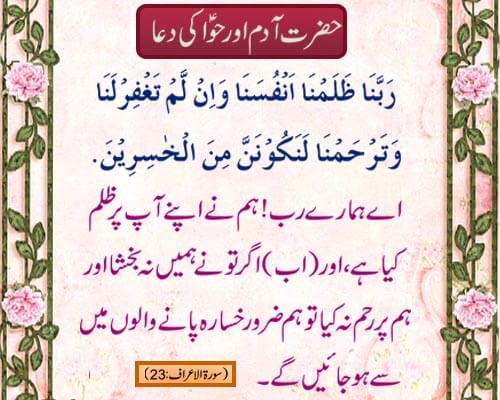 حضرت آدم اور حوّاؑ کی دعا
رَبَّنَا ظَلَمْنَا اَنْفُسَنَا وَاِنْ لَّمْ تَغْفِرْلَنَا
وَتَرْحَمْنَا لَنَكُوْنَنَّ مِنَ الْخٰسِرِيْنَ.
اے ہمارے رب! ہم نے اپنے آپ پر ظلم
کیا ہے، اور (اب) اگر تو نے ہمیں نہ بخشا اور
ہم پر رحم نہ کیا تو ہم ضرور خسارہ پانے والوں میں
سے ہو جائیں گے۔
(سورۃ الاعراف:23)